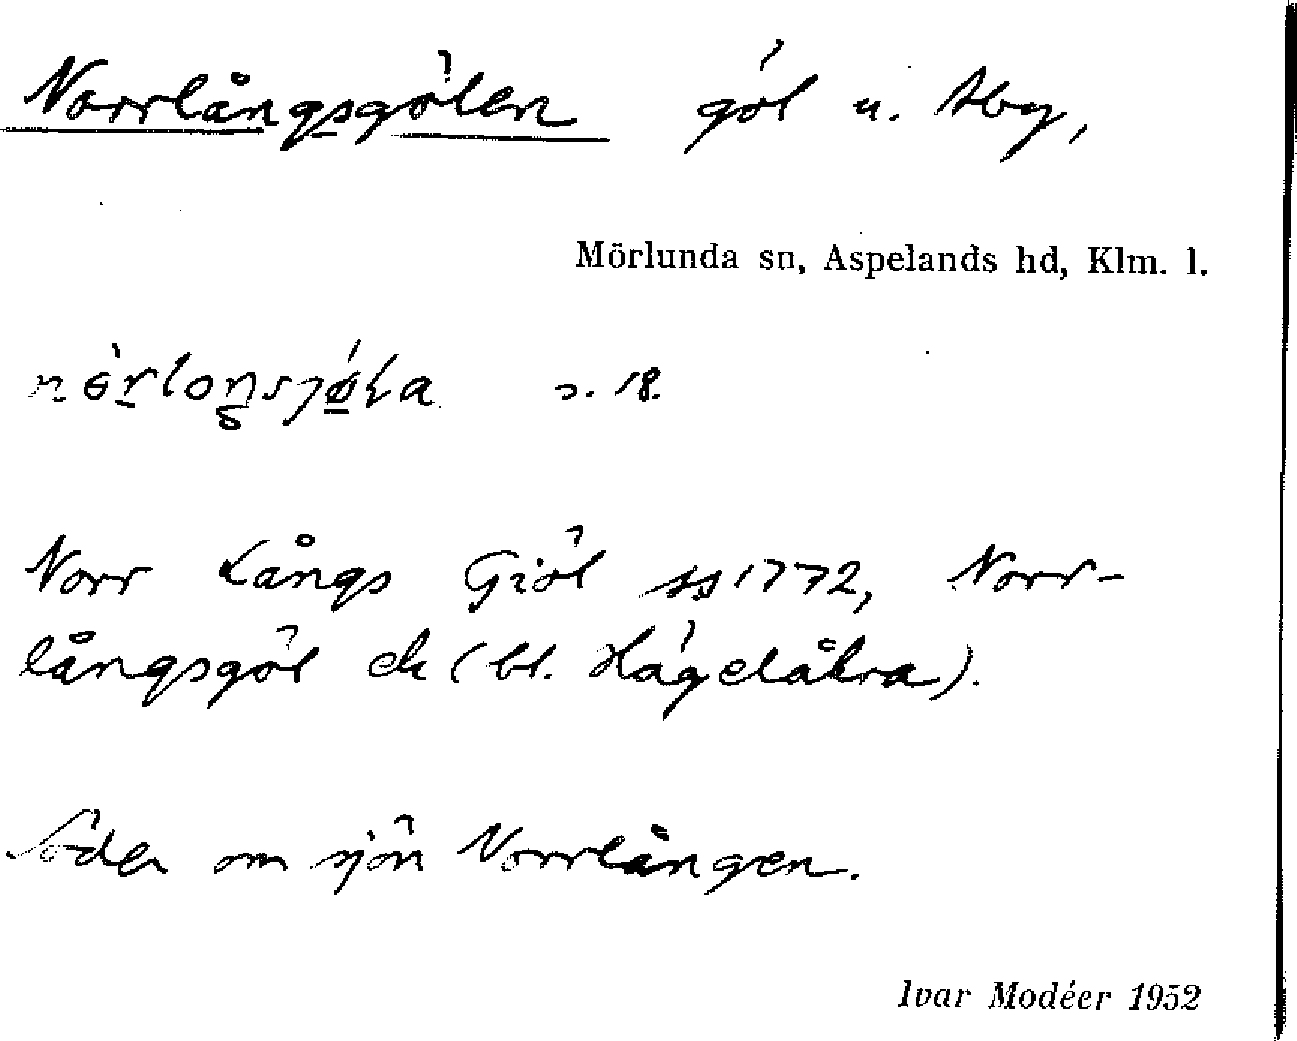 Norrlångsgölen göl u. Åby,
Mörlunda sn, Aspelands hd, Klm. l.
s. 18.
Norr Långs Giöl 1772, Norr-
långsgöl ek (bl. Hägelåkra).
Söder om sjön Norrlången.
Ivar Modéer 1952